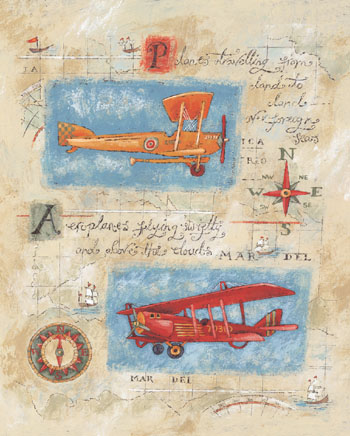 Planes travelling from
land to
land
N
NW NE
W E
S
Aeroplanes flying swiftly
and above the clouds
MAR DEL
MAR DEL